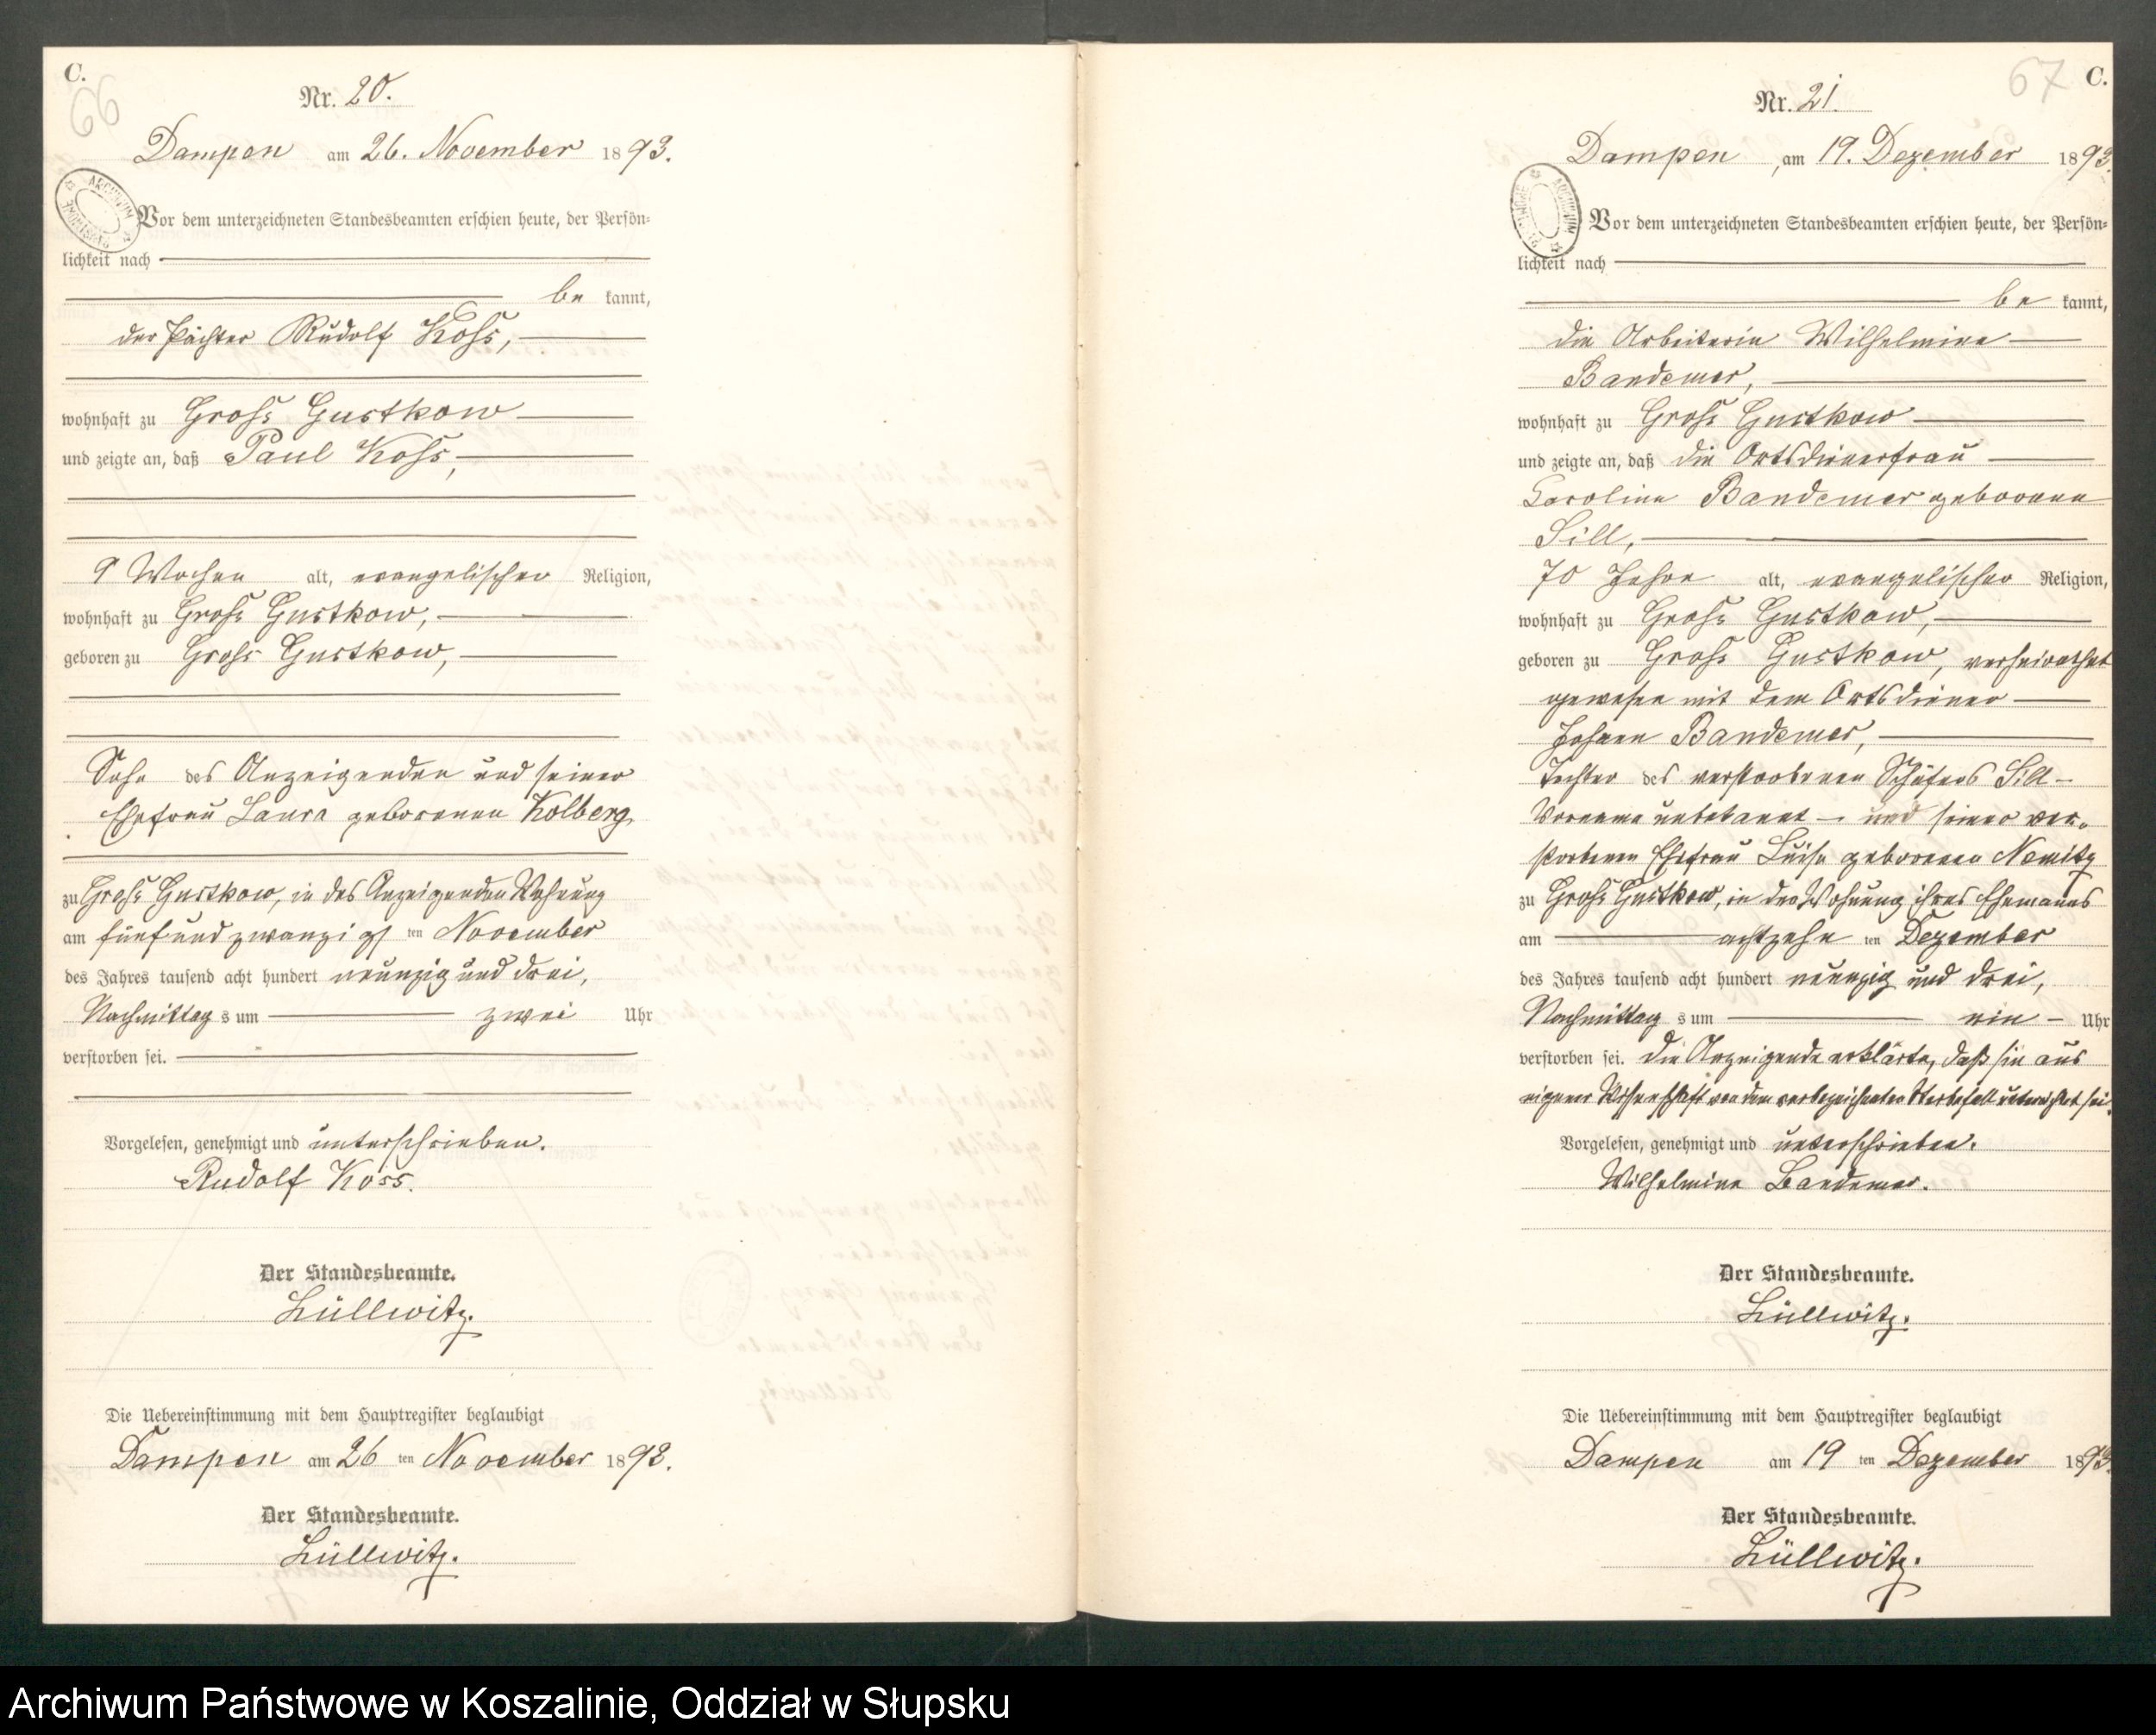 C.
66
Nr. 20.
Dampen am 26. November 1893.
ARCHIWUM PAŃSTWOWE
Vor dem unterzeichneten Standesbeamten erschien heute, der Persön-
lichkeit nach
be kannt,
der Pächter Rudolf Koss,
wohnhaft zu Gross Gustkow
und zeigte an, daß Paul Koss,
9 Wochen alt, evangelischer Religion,
wohnhaft zu Gross Gustkow,
geboren zu Gross Gustkow,
Sohn des Anzeigenden und seiner
Ehefrau Laura geborenen Kolberg
zu Gross Gustkow, in des Anzeigenden Wohnung
am fünfundzwanzigsten November
des Jahres tausend acht hundert neunzig und drei,
Nachmittags um zwei Uhr
verstorben sei.
Vorgelesen, genehmigt und unterschrieben.
Rudolf Koss.
Der Standesbeamte.
Lüllwitz.
Die Uebereinstimmung mit dem Hauptregister beglaubigt
Dampen am 26 ten November 1893.
Der Standesbeamte.
Lüllwitz.
67 C.
Nr. 21.
Dampen, am 19. Dezember 1893.
ARCHIWUM PAŃSTWOWE
Vor dem unterzeichneten Standesbeamten erschien heute, der Persön-
lichkeit nach
be kannt,
die Arbeiterin Wilhelmine
Bandemer,
wohnhaft zu Gross Gustkow
und zeigte an, daß die Ortsdienerfrau
Caroline Bandemer geborene
Sill,
70 Jahre alt, evangelischer Religion,
wohnhaft zu Gross Gustkow,
geboren zu Gross Gustkow, verheirathet
gewesen mit dem Ortsdiener
Johann Bandemer,
Tochter des verstorbenen Schäfers Sill -
Vorname unbekannt - und seiner ver-
storbenen Ehefrau Luise geborenen Nemitz
zu Gross Gustkow, in der Wohnung ihres Ehemannes
am achtzehn ten Dezember
des Jahres tausend acht hundert neunzig und drei,
Nachmittags um ein Uhr
verstorben sei. Die Anzeigende erklärte, daß sie aus
eigener Wissenschaft von dem vorbezeichneten Sterbefall unterrichtet sei.
Vorgelesen, genehmigt und unterschrieben.
Wilhelmine Bandemer.
Der Standesbeamte.
Lüllwitz.
Die Uebereinstimmung mit dem Hauptregister beglaubigt
Dampen am 19 ten Dezember 1893.
Der Standesbeamte.
Lüllwitz.
Archiwum Państwowe w Koszalinie, Oddział w Słupsku